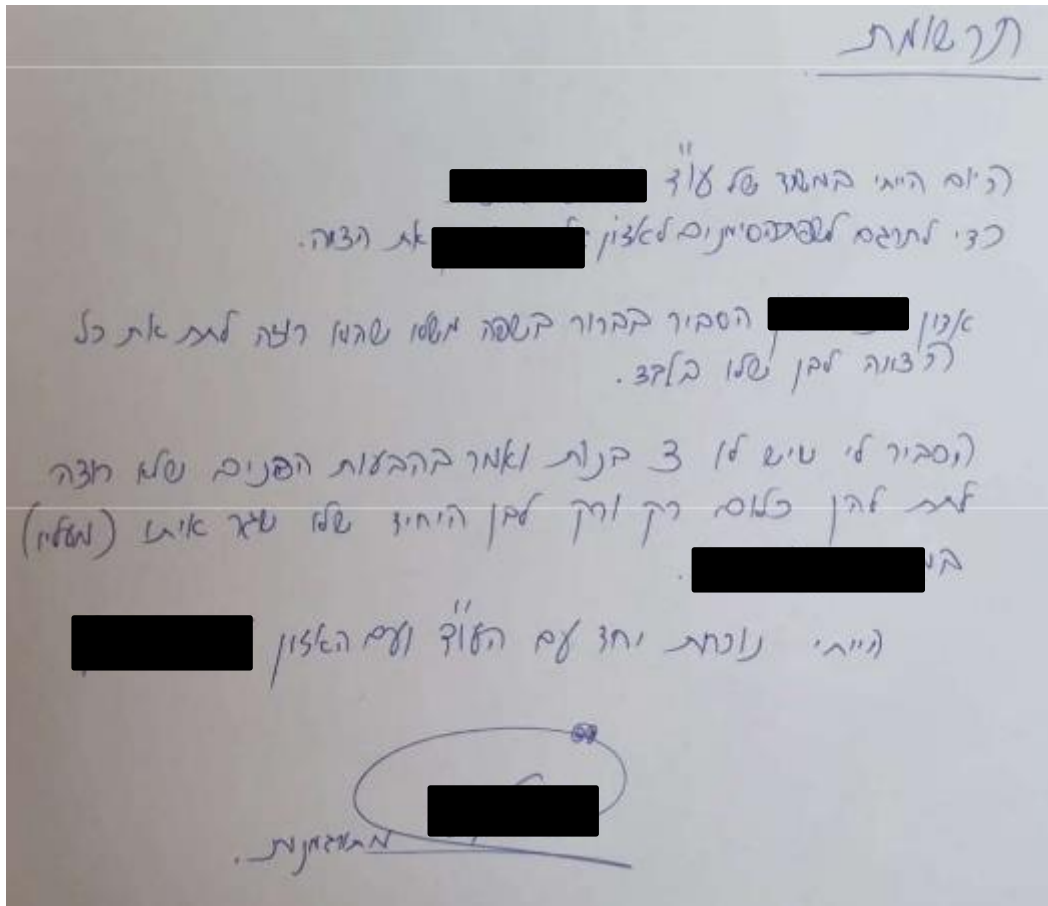 תרשומת
היום הייתי במשרד של עו"ד
כדי לתרגם לשפת הסימנים לאדון את הצוואה.
אדון הסביר בברור בשפה משלו שהוא רוצה לתת את כל
הצוואה לבן שלו בלבד.
הסביר לי שיש לו 3 בנות ואמר בהבעות הפנים שלא רוצה
לתת להן כלום רק ורק לבן היחיד שלו שגר איתו (מעליו)
הייתי נוכחת יחד עם העו"ד ועם האדון
מתורגמנית.